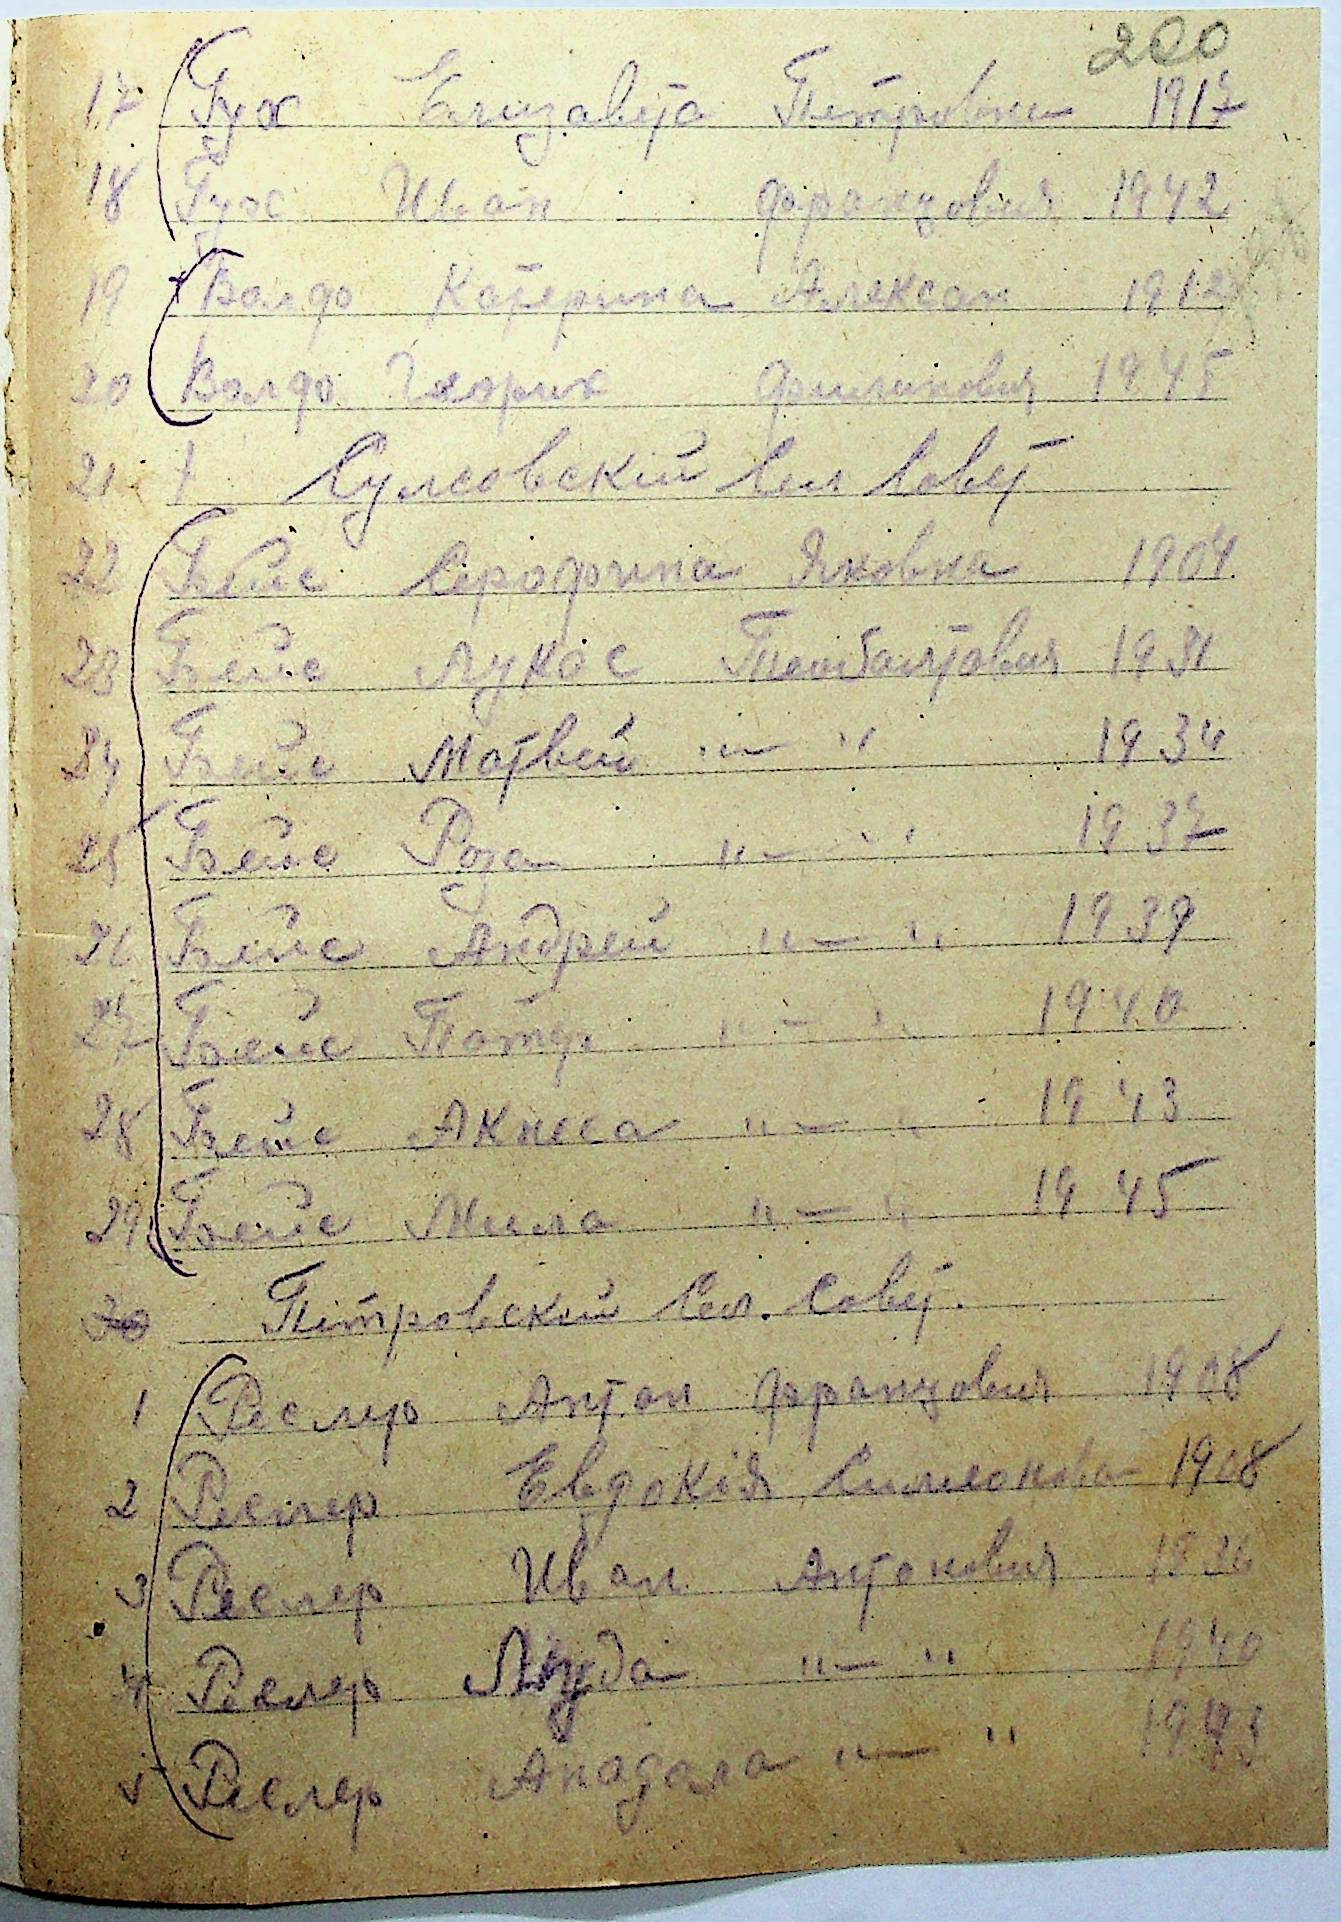 200
17 Гух Елизавета Петровна 1917
18 Гух Иван Францович 1942
19 Валдо Катерина Алексан 1912
20 Валдо Георих Филипович 1945
21 Сел Совет
22 Бейс Серафина Яковна 1904
23 Бейс Лукас 1931
24 Бейс Матвей "—" 1934
25 Бейс Роза "—" 1937
26 Бейс Андрей "—" 1939
27 Бейс "—" 1940
28 Бейс Акнеса "—" 1943
29 Бейс Мила "—" 1945
30 Петровский Сел. Совет.
1 Реслер Антон Францович 1908
2 Реслер Евдокія Симеонова 1908
3 Реслер Иван Антонович 1936
4 Реслер Люда "—" 1940
5 Реслер "—" 1943